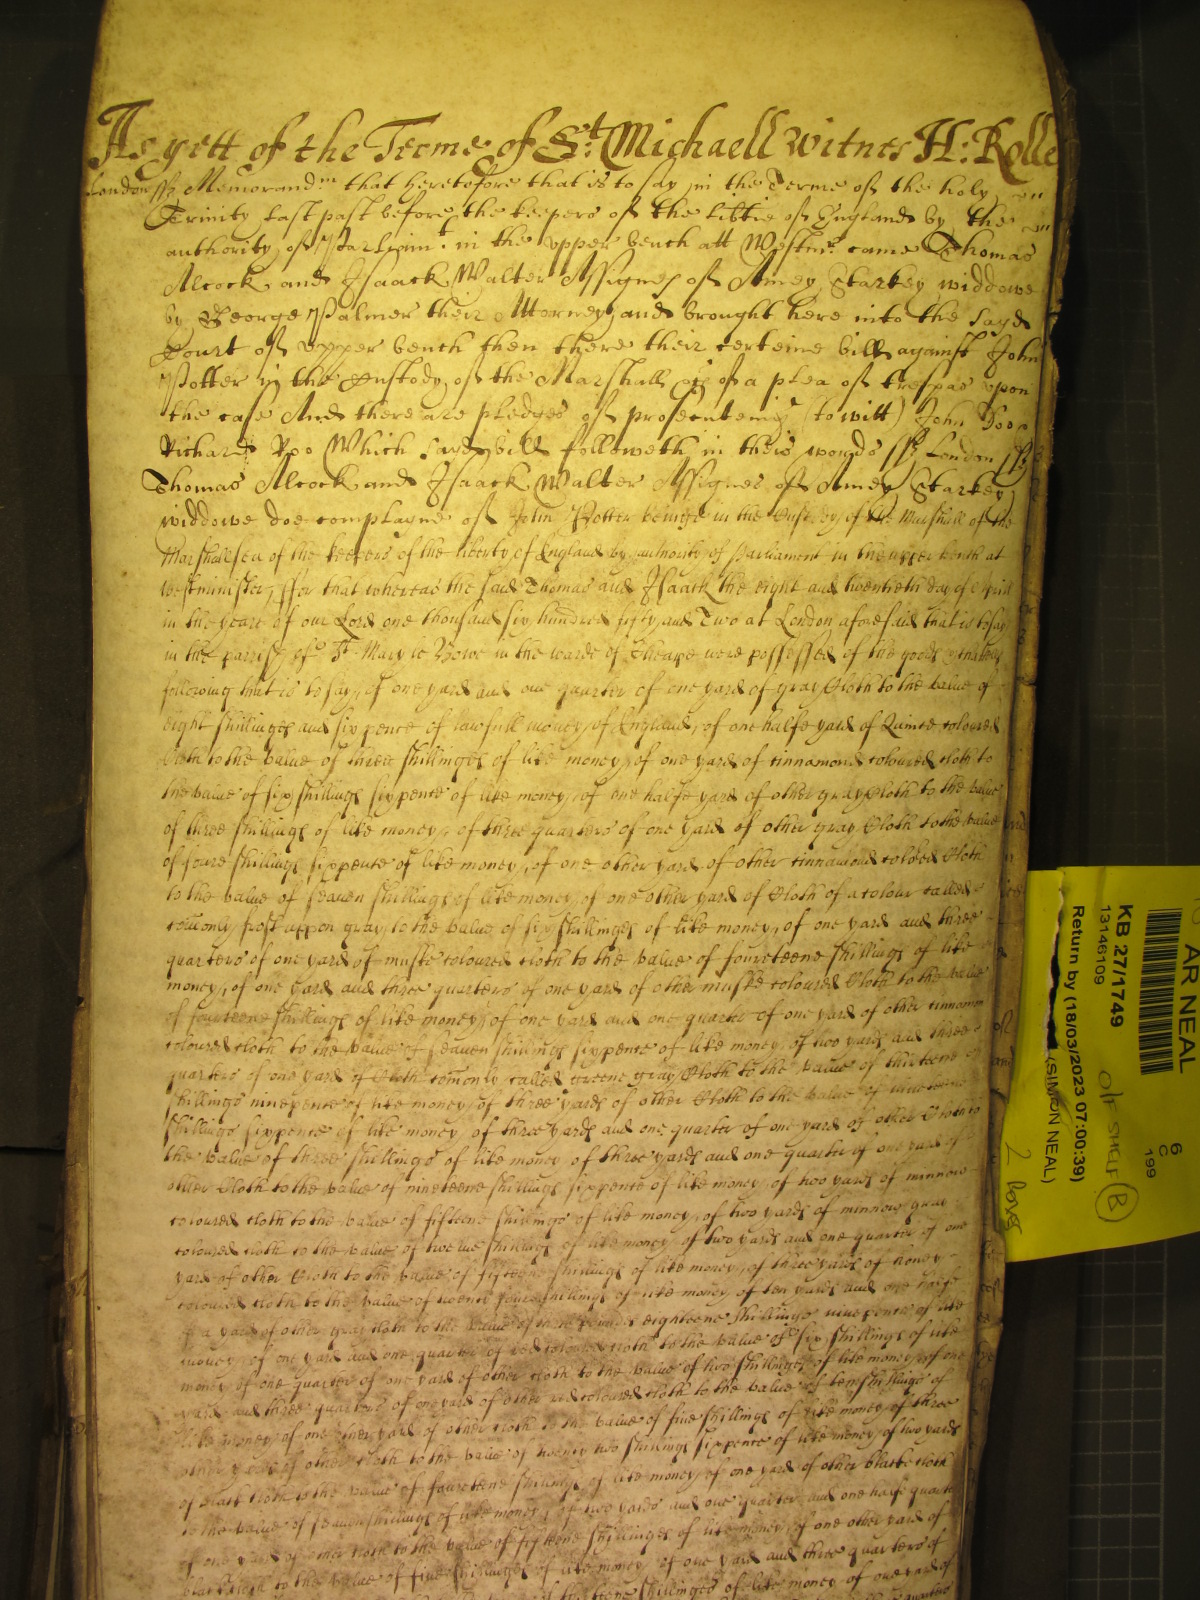 As yett of the Terme of St. Michaell Witnes H: Rolle
London ss Memorandm that heretofore that is to say in the Terme of the holy
Trinity last past before the keepers of the libtie of England by the
authority of Parliamt. in the upper bench att Westmr. came Thomas
Alcock and Isaack Walter Assignes of Amey Starkey widdowe
by George Palmer their Attorney and brought here into the sayd
Court of upper bench then there their certeine bill against John
Potter in the Custody of the Marshall &c of a plea of trespas upon
the case And there are pledges of prosecuteing (to witt) John Doo
Richard Roo Which sayd bill followeth in theis words ss London ss
Thomas Alcock and Isaack Walter Assignes of Amey Starkey
widdowe doe complayne of John Potter beinge in the Custody of the Marshall of the
Marshallsea of the keepers of the liberty of England by authority of Parliament in the upper bench at
Westminister, ffor that whereas the said Thomas and Isaack the eight and twentieth day of Aprill
in the yeare of our Lord one thousand six hundred fifty and Two at London aforesaid that is to say
in the parrish of St. Mary le Bowe in the warde of Cheape were possessed of the goods
following that is to say, of one yard and one quarter of one yard of gray Cloth to the value of
eight shillinges and six pence of lawfull money of England, of one halfe yard of Quince coloured
Cloth to the value of three shillinges of like money, of one yard of cinnamond coloured cloth to
the value of six shillings sixpence of like money, of one halfe yard of other gray Cloth to the value
of three shillings of like money, of three quarters of one yard of other gray Cloth to the value
of foure shillings sixpence of like money, of one other yard of other cinnamond colored Cloth
to the value of seaven shillings of like money, of one other yard of Cloth of a colour called
comonly frost uppon gray, to the value of six shillinges of like money, of one yard and three
quarters of one yard of muske coloured cloth to the value of foureteene shillings of like
money, of one yard and three quarters of one yard of other muske coloured Cloth to the value
of fourteene shillings of like money, of one yard and one quarter of one yard of other cinnamon
coloured cloth to the value of seaven shillings sixpence of like money of two yards and three
quarters of one yard of Cloth comonly called greene gray Cloth to the value of thirteene
shillings ninepence of like money, of three yards of other Cloth to the value of nineteene
shillings sixpence of like money, of three yards and one quarter of one yard of other Cloth to
the value of three shillings of like money of three yards and one quarter of one yard of
other Cloth to the value of nineteene shillings sixpence of like money, of two yards of minnow
coloured cloth to the value of fifteene shillings of like money, of two yards of minnow gray
coloured cloth to the value of twelve shillings of like money of two yards and one quarter of one
yard of other Cloth to the value of fifteene shillings of like money, of three yards of honey
coloured cloth to the value of twenty foure shillings of like money, of ten yards and one halfe
of a yard of other gray cloth to the value of three pounds eighteene shillings ninepence of like
money, of one yard and one quarter of red coloured cloth to the value of six shillings of like
money of one quarter of one yard of other cloth to the value of two shillings of like money, of one
yard and three quarters of one yard of other red coloured cloth to the value of ten shillings of
like money, of one other yard of other cloth to the value of five shillings of like money of three
other yards of other cloth to the value of twenty two shillings sixpence of like money, of two yards
of black cloth to the value of fourteene shillings of like money, of one yard of other blacke cloth
to the value of seaven shillings of like money, of two yards and one quarter and one halfe quarter
of one yard of other cloth to the value of fifteene shillinges of like money, of one other yard of
black cloth to the value of five shillinges of like money of one yard and three quarters of
shillinges of like money of one yard of
AR NEAL
KB 27/1749
13146109
Return by (18/03/2023 07:00:39)
(SIMON NEAL)
6
C
199
O/F SHELF
B
2 boxes